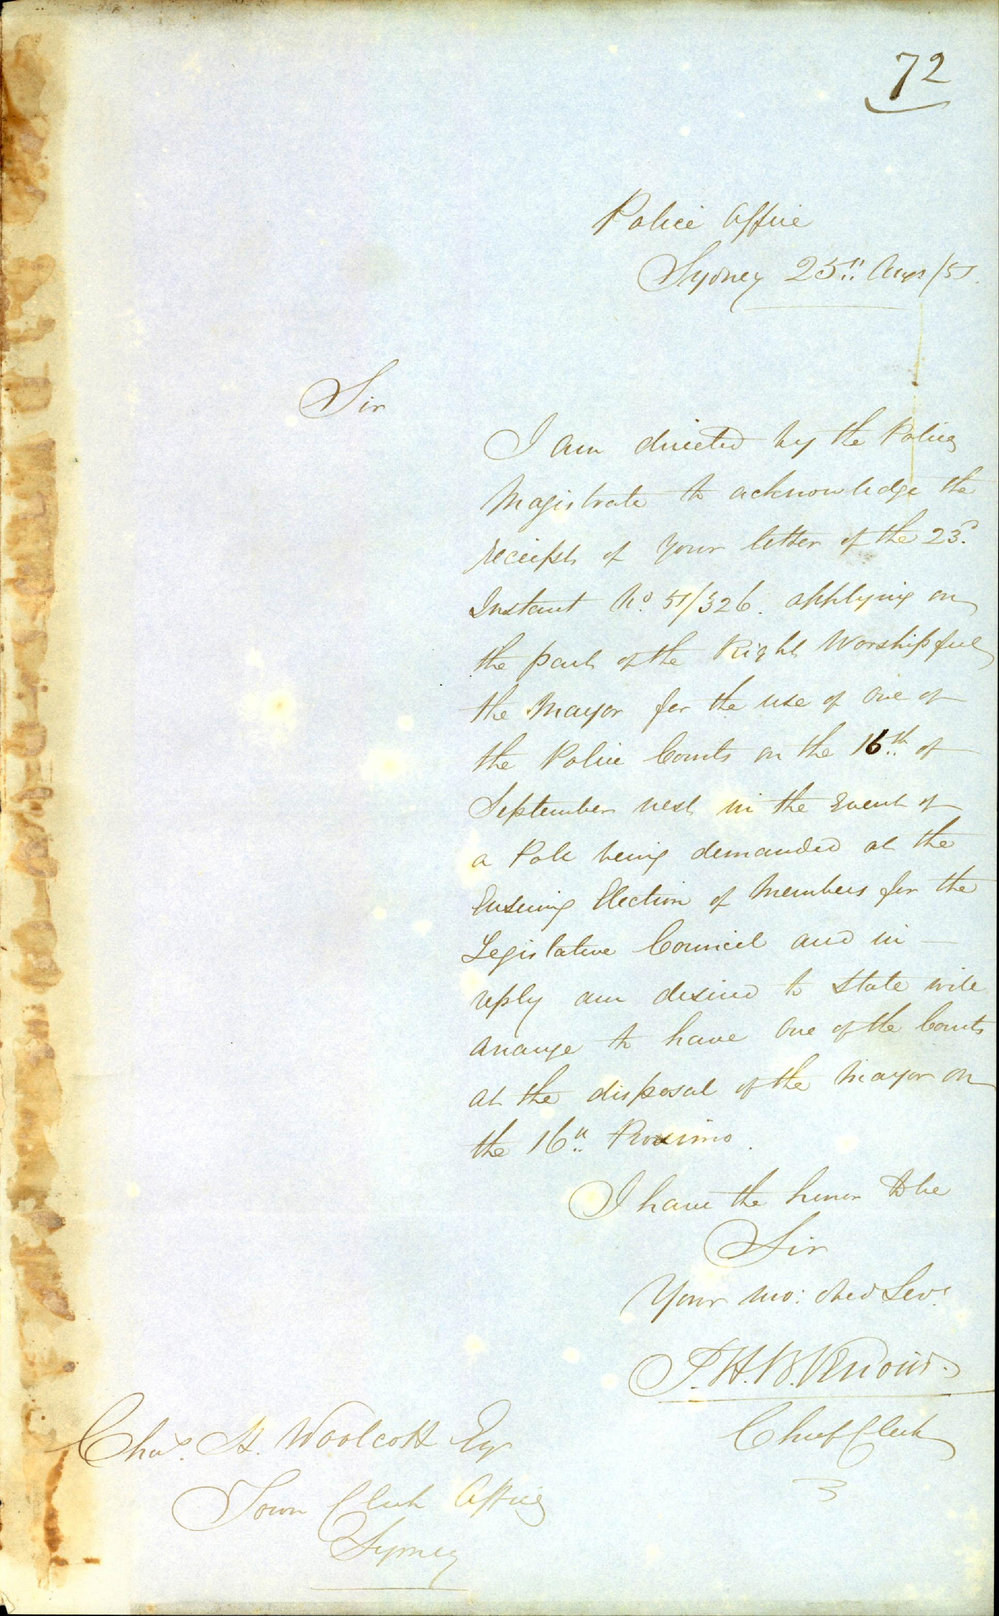 72
Police Office
Sydney 25th Augt /51.
Sir
I am directed by the Police
Magistrate to acknowledge the
receipt of your letter of the 23d.
Instant No. 51/326. applying on
the part of the Right Worshipful
the Mayor for the use of one of
the Police Courts on the 16th of
September next in the Event of
a Poll being demanded at the
Ensuing Election of Members for the
Legislative Council and in
reply am desired to state will
arrange to have One of the Courts
at the disposal of the Mayor on
the 16th Proximo.
I have the honor to be
Sir
Your mo: obed Servt.
J. H. B.
Chief Clerk
Chas. H. Woolcott Esqr
Town Clerk Office
Sydney